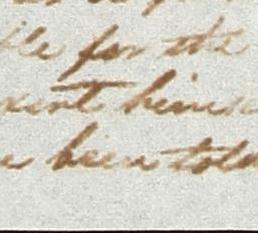 ble for the
xent himse
n been told